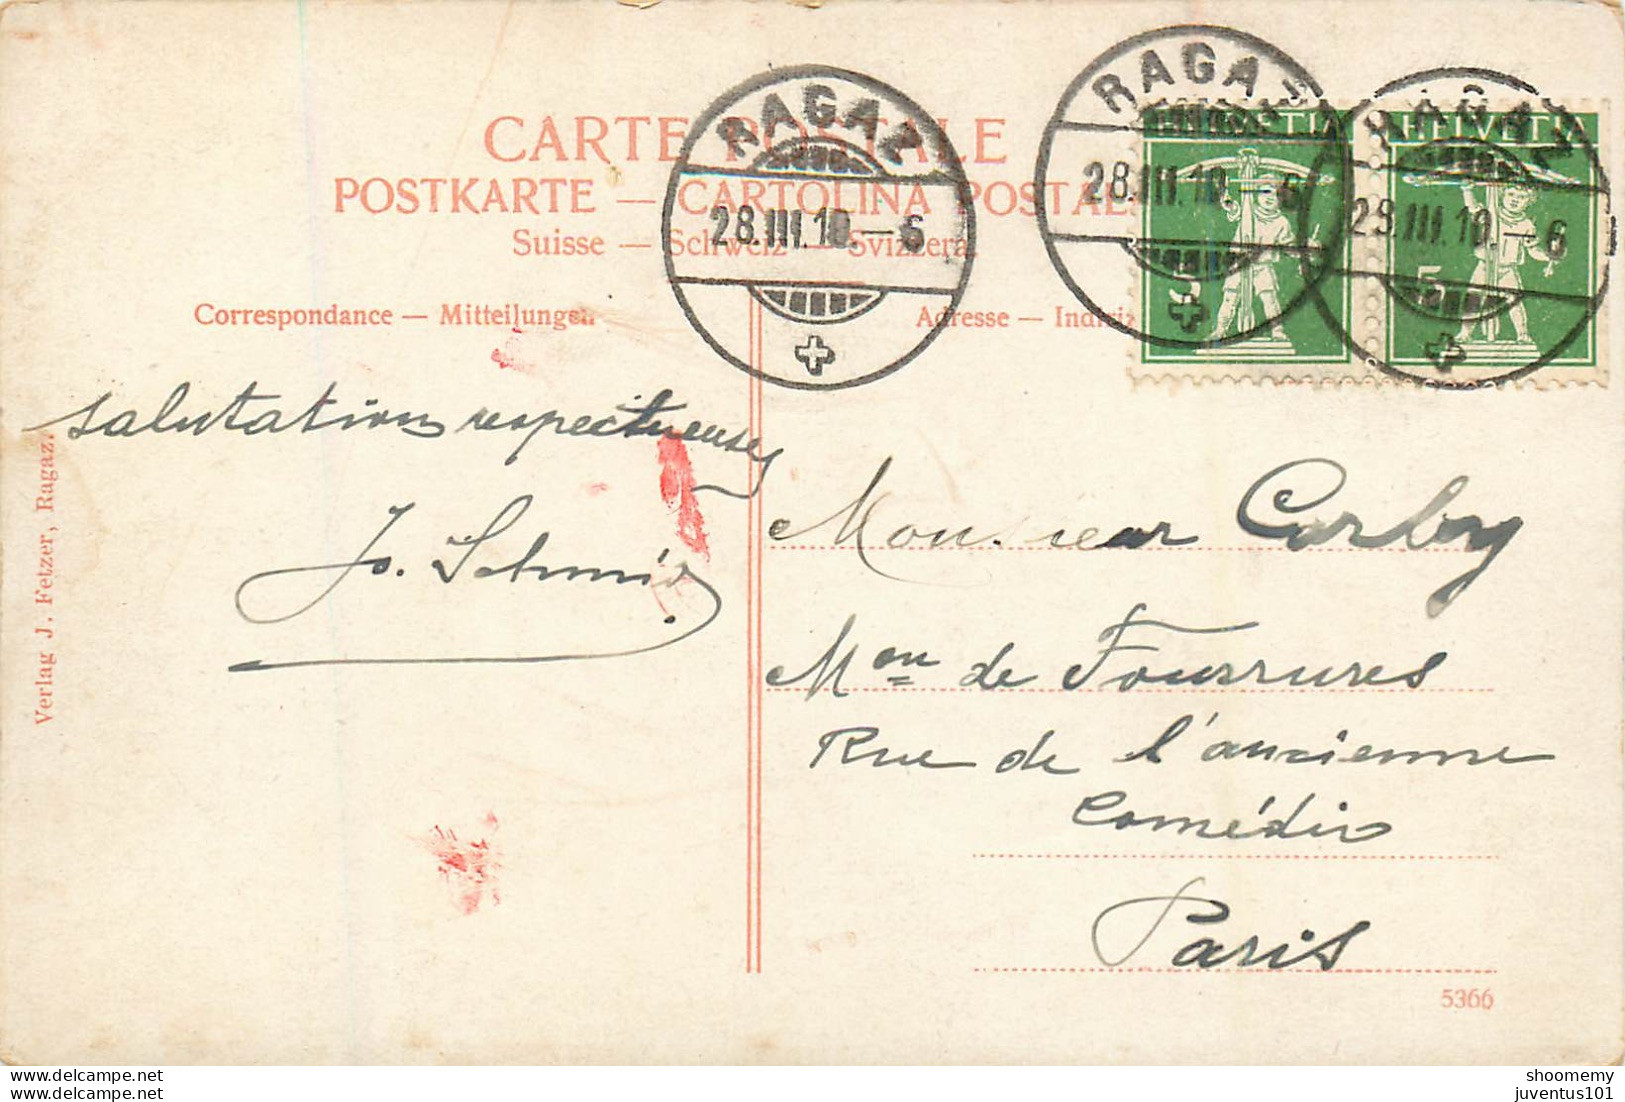 CARTE POSTALE
POSTKARTE — CARTOLINA POSTAL
Suisse — Schweiz — Svizzera
Correspondance — Mitteilungen
Adresse — Indiriz
RAGAZ
28.III.10.—6
RAGAZ
28.III.10.—6
RAGAZ
28.III.10.—6
HELVETIA
5
HELVETIA
5
salutation respectueuse
Jo. Schmid
Verlag J. Fetzer, Ragaz.
Monsieur Corby
Mon de Fourrures
Rue de l'ancienne
Comédie
Paris
5366
www.delcampe.net
www.delcampe.net
shoomemy
juventus101